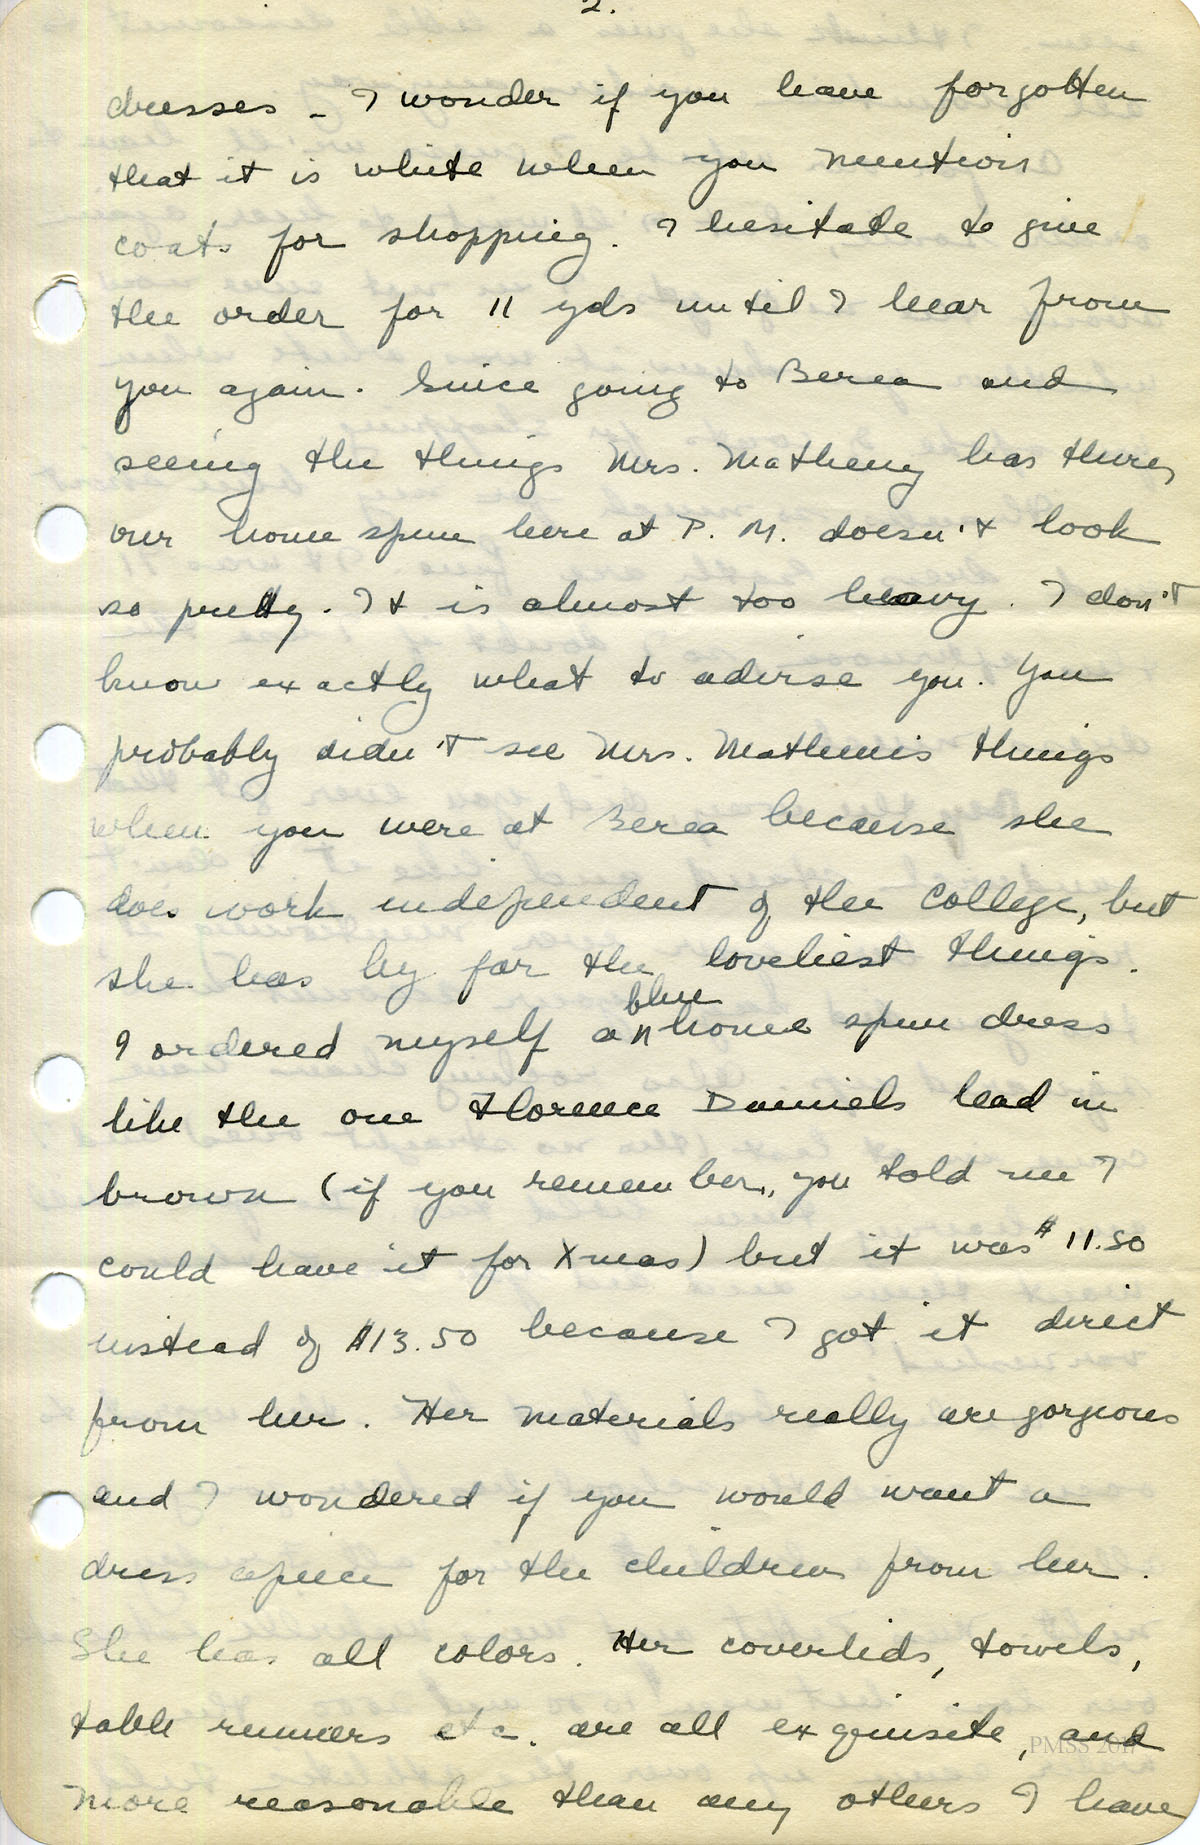 2.
dresses - I wonder if you have forgotten
that it is white when you mention
coats for shopping. I hesitate to give
the order for 11 yds until I hear from
you again. Since going to Berea and
seeing the things Mrs. Matheny has there,
our home spun here at P. M. doesn't look
so pretty. It is almost too heavy. I don't
know exactly what to advise you. You
probably didn't see Mrs. Mathenis things
when you were at Berea because she
does work independent of the college, but
she has by far the loveliest things.
blue
I ordered myself an home spun dress
like the one Florence Daniels had in
brown (if you remember, you told me I
could have it for Xmas) but it was $11.50
instead of $13.50 because I got it direct
from her. Her materials really are gorgeous
and I wondered if you would want a
dress apiece for the children from her.
She has all colors. Her coverlids, towels,
table runners etc. are all exquisite, and
more reasonable than any others I have
PMSS 2017